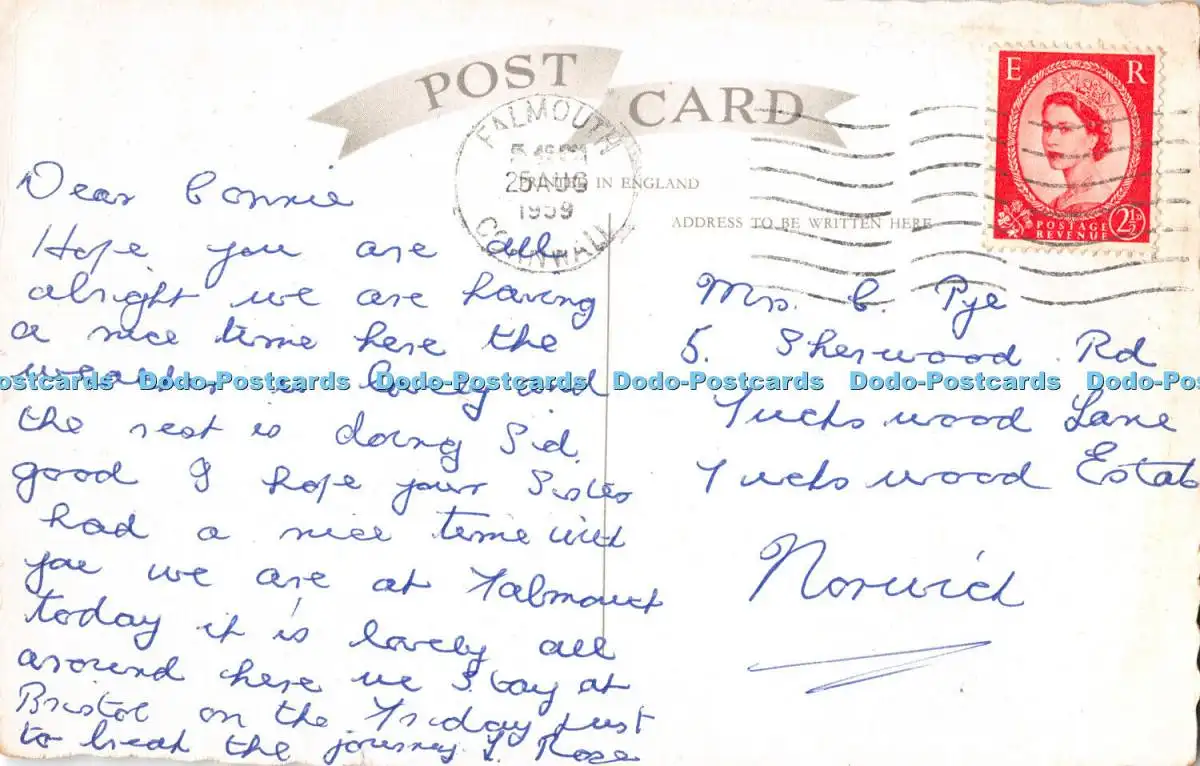 POST CARD
FALMOUTH
25 AUG
1959
CORNWALL
PRINTED IN ENGLAND
ADDRESS TO BE WRITTEN HERE
E R
POSTAGE
REVENUE
2½D
Dear Connie
Hope you are all
alright we are having
a nice time here the
weather is lovely and
the rest is doing Sid
good I hope your Sister
had a nice time with
you we are at Falmouth
today it is lovely all
around here we Stay at
Bristol on the Friday just
to break the journey L. Rose
Mrs. C. Pye
5. Sherwood Rd
Tuckswood Lane
Tuckswood Estat
Norwich
Dodo-Postcards Dodo-Postcards Dodo-Postcards Dodo-Postcards Dodo-Postcards